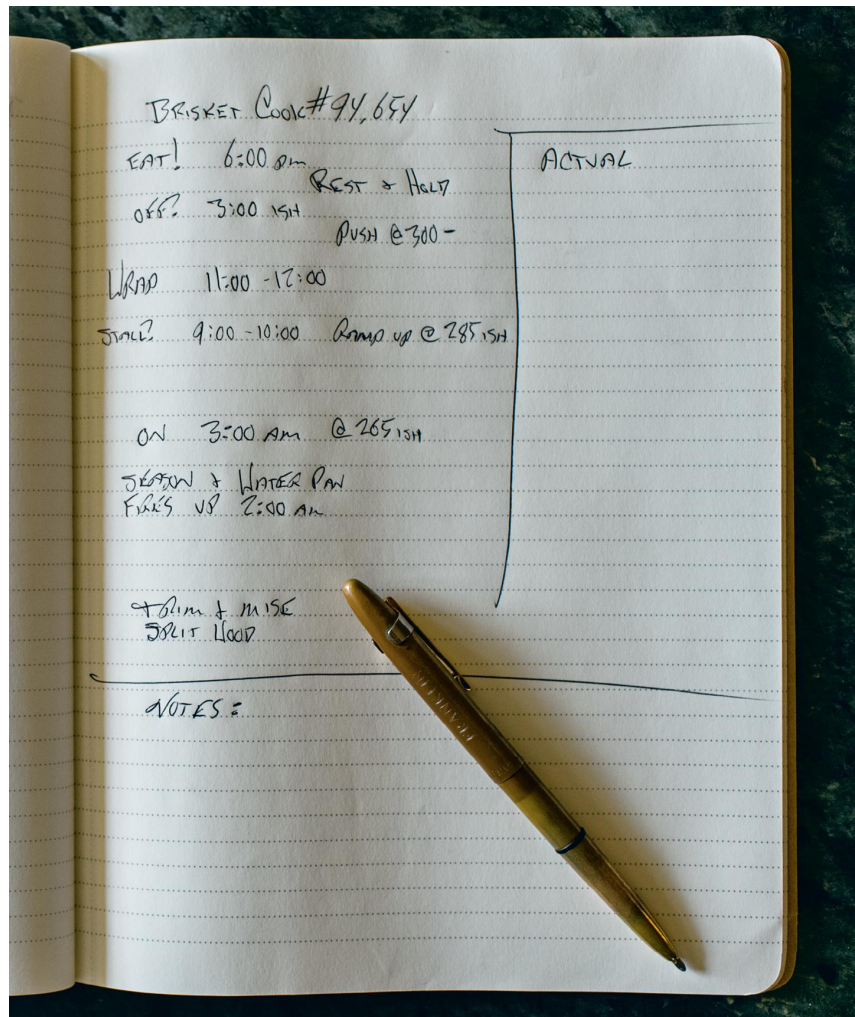 BRISKET COOK #94,654
EAT! 6:00 pm
REST & HOLD
OFF? 3:00 ISH
PUSH @ 300-
WRAP 11:00-12:00
STALL? 9:00-10:00 RAMP UP @ 285 ISH
ON 3:00 AM @ 265 ISH
SEASON & WATER PAN
FIRES UP 2:00 AM
TRIM & MISE
SPLIT WOOD
ACTUAL
NOTES:
FRANKLIN